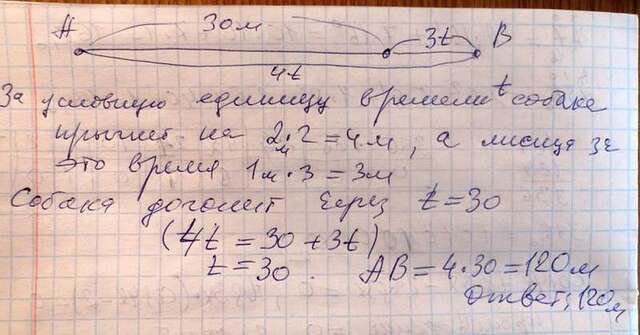 A 30м 3t B
4t
За условную единицу времени t собака
прыгнет на 2м·2=4м, а лисица за
это время 1м·3=3м
Собака догонит через t=30
(4t=30+3t)
t=30. AB=4·30=120м
Ответ: 120м